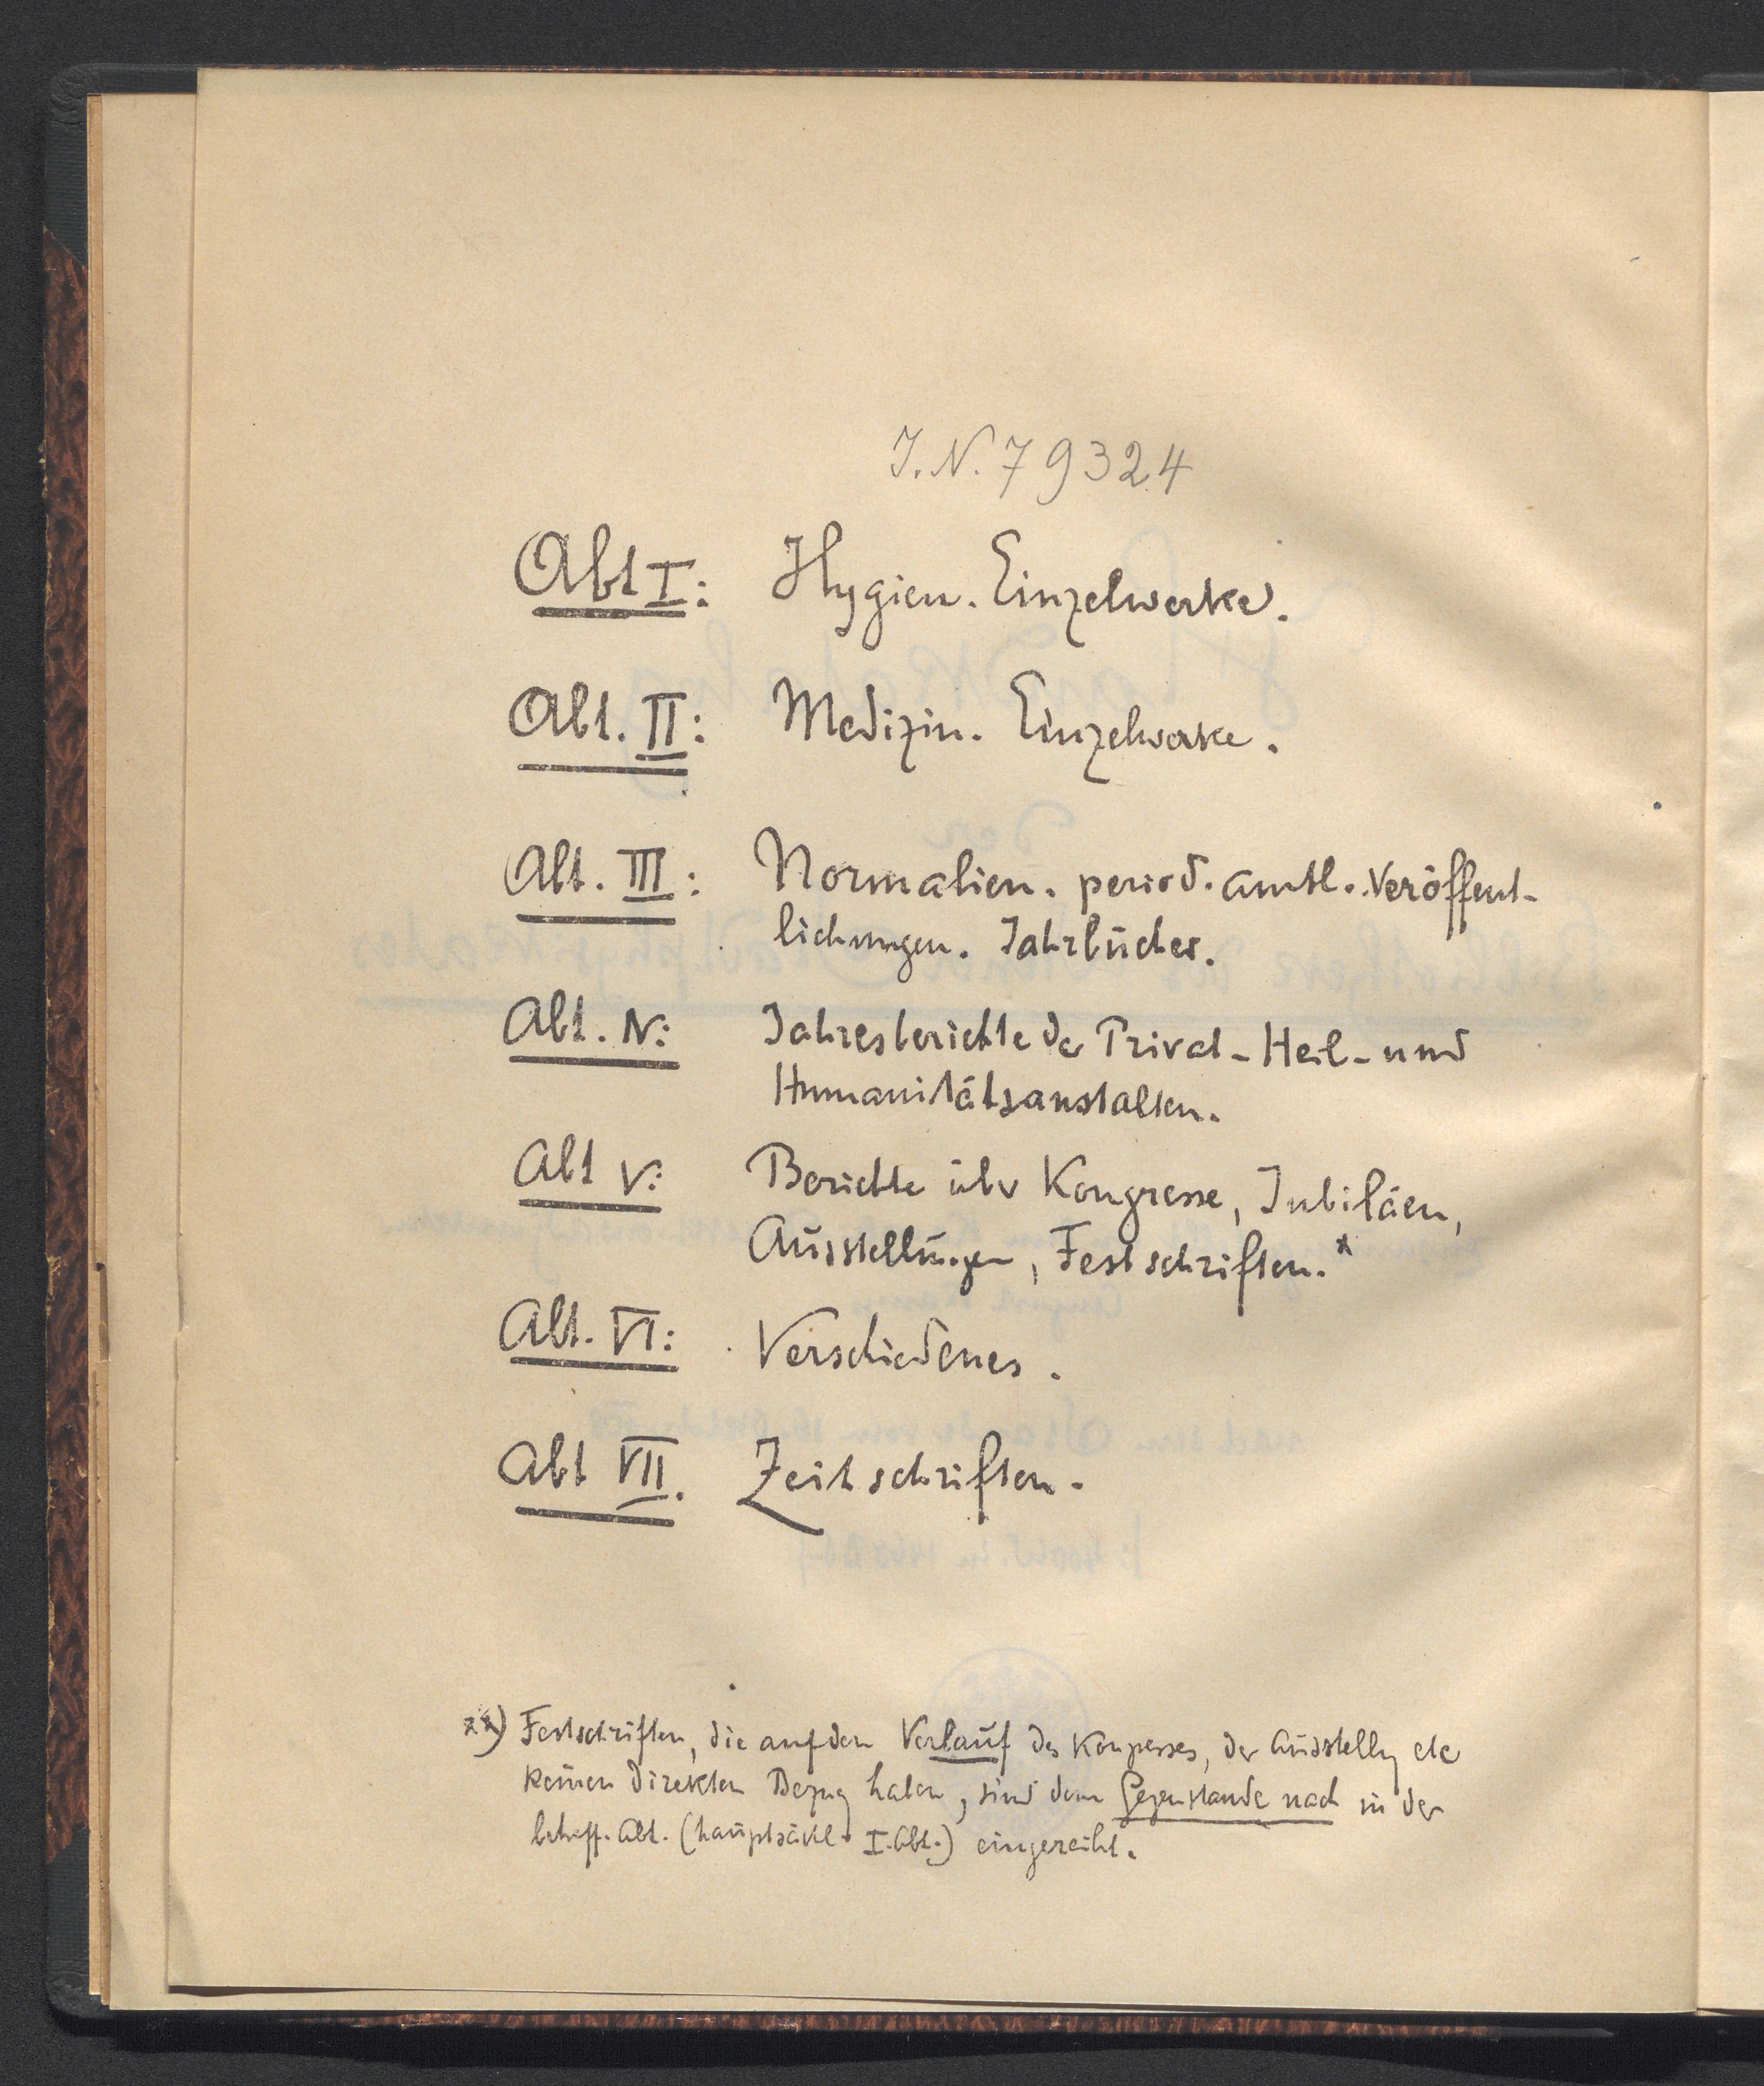 J.N. 79324
Abt I: Hygien. Einzelwerke.
Abt. II: Medizin. Einzelwerke.
Abt. III: Normalien. period. amtl. Veröffent-
lichungen. Jahrbücher.
Abt. IV: Jahresberichte der Privat-Heil-und
Humanitätsanstalten.
Abt V: Berichte über Kongresse, Jubiläen,
Ausstellungen, Festschriften.*
Abt. VI: Verschiedenes.
Abt VII. Zeitschriften.
**) Festschriften, die auf den Verlauf des Kongresses, der Ausstellg etc
keinen direkten Bezug haben, sind dem Gegenstande nach in der
betreff. Abt. (hauptsächl. I. Abt.) eingereiht.